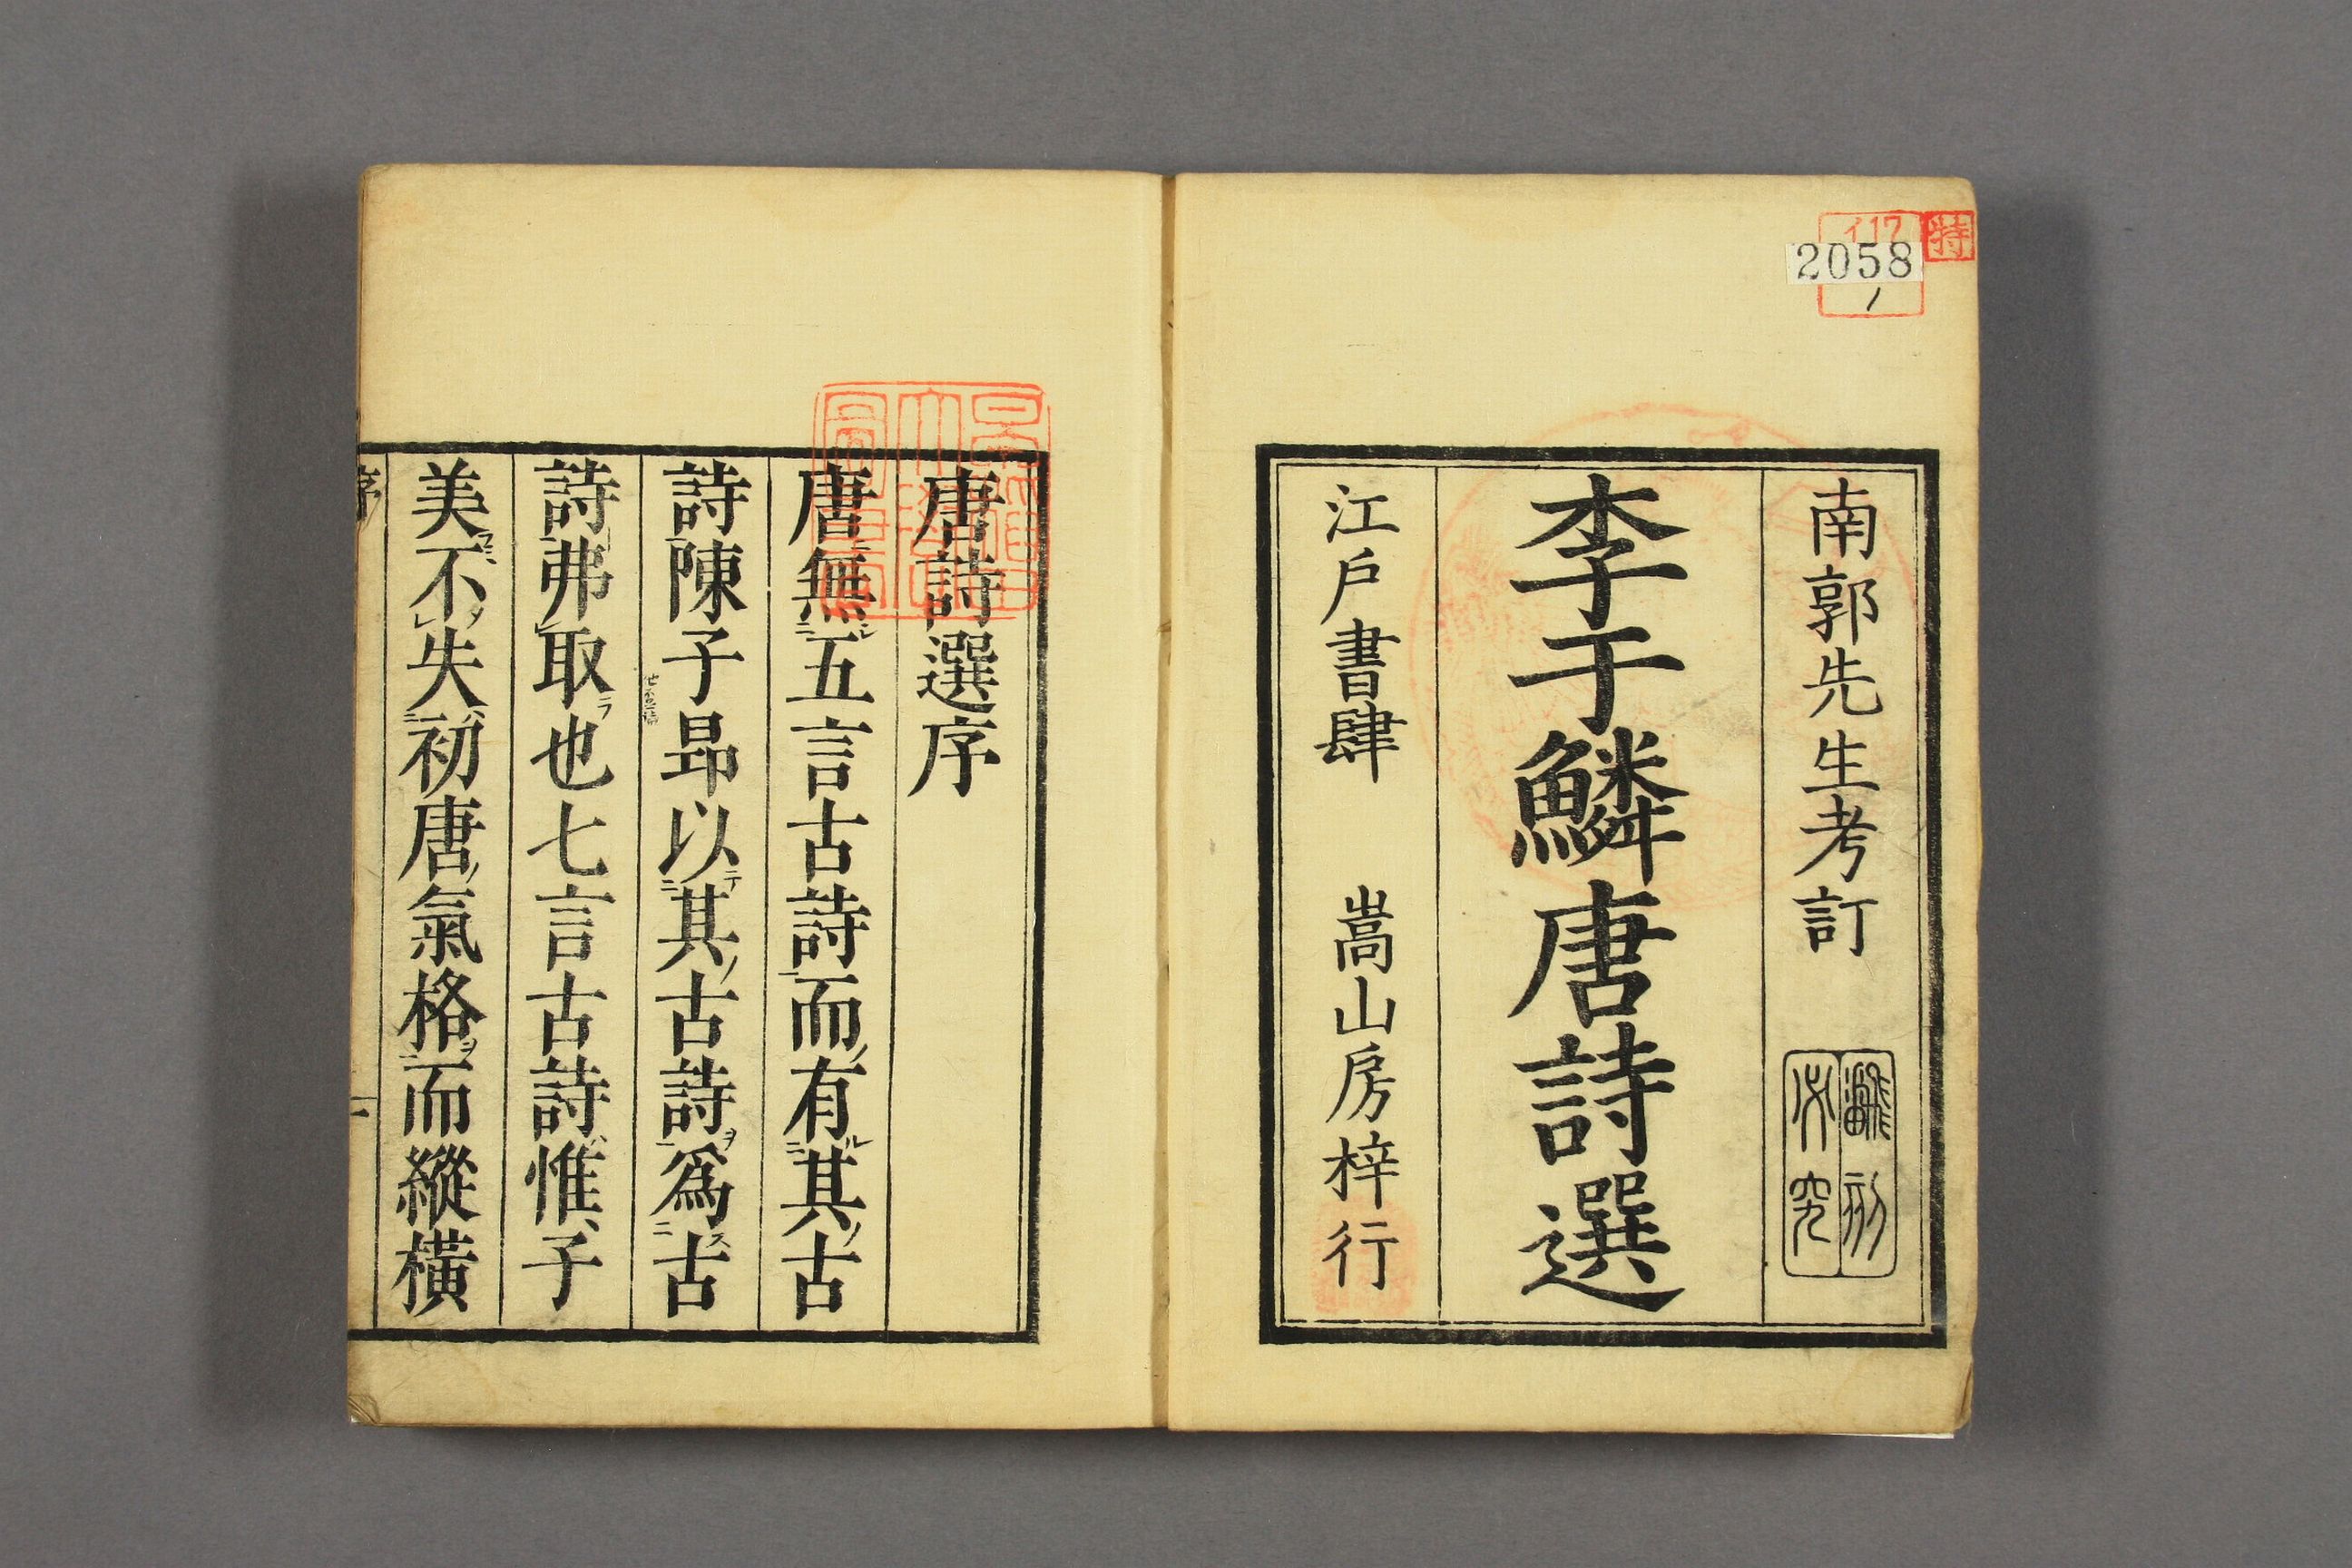 特
イ17
2058
1
南郭先生考訂
翻刻
必究
李于鱗唐詩選
江戶書肆　嵩山房梓行
唐詩選序
唐無五言古詩而有其古
詩陳子昻以其古詩爲古
詩弗取也七言古詩惟子
美不失初唐氣格而縱橫
序
一